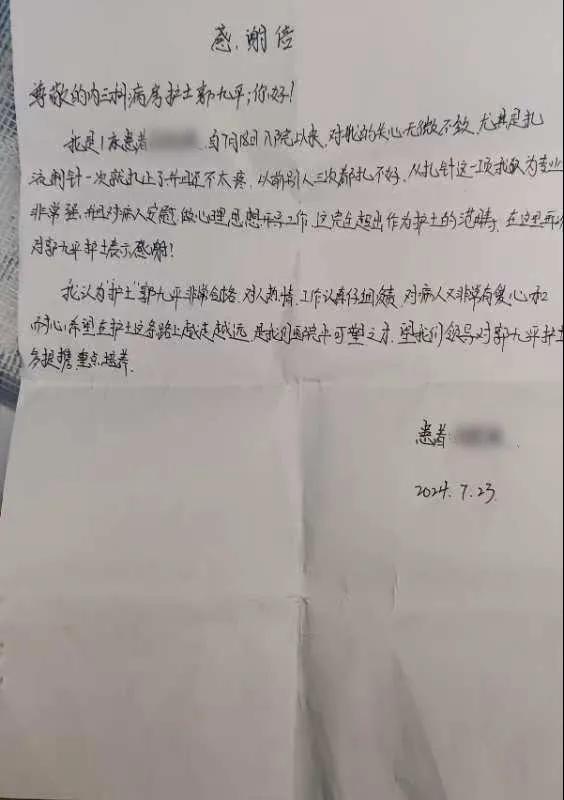 感谢信
尊敬的内三科病房护士郭九平；你好！
我是1床患者 自7月18日入院以来，对我的关心无微不致，尤其是扎
液射针一次就扎上了并且还不太疼，以前别人三次都扎不好，从扎针这一项我认为专业
非常强，并且对病人安慰，做心理思想工作，这完全超出作为护士的范畴，在这里再次
对郭九平护士表示感谢！
我认为"护士"郭九平非常合格，对人热情，工作认真仔细负责，对病人又非常有爱心和
耐心，希望在护士这条路上越走越远，是我们医院可塑之才，望我们领导对郭九平护士
多提携重点培养。
患者：
2024.7.23